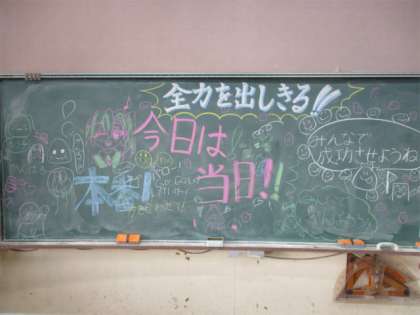 全力を出しきる!!
今日は
当日!!
本番!
みんなで
成功させようね